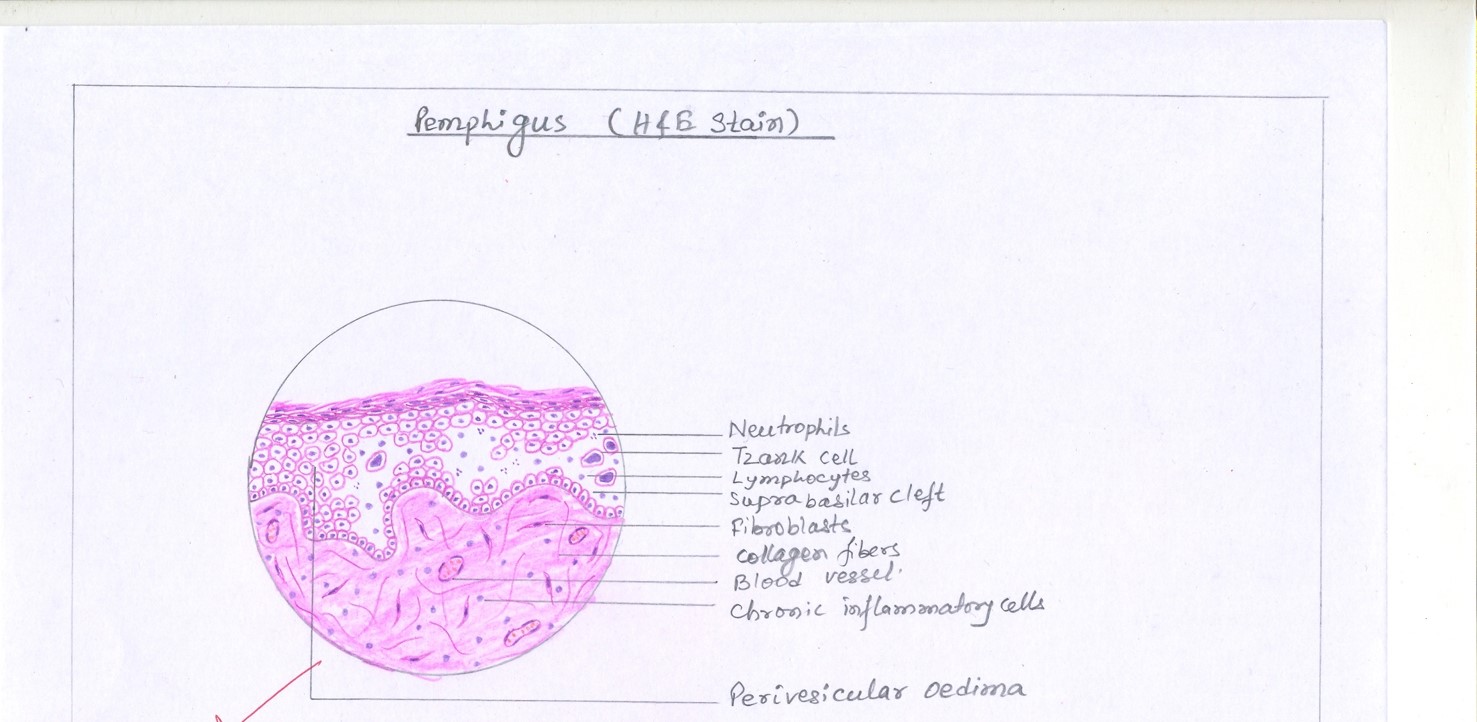 Pemphigus (H&E Stain)
Neutrophils
Tzank cell
Lymphocytes
Suprabasilar cleft
Fibroblasts
Collagen fibers
Blood vessel
Chronic inflammatory cells
Perivesicular oedima